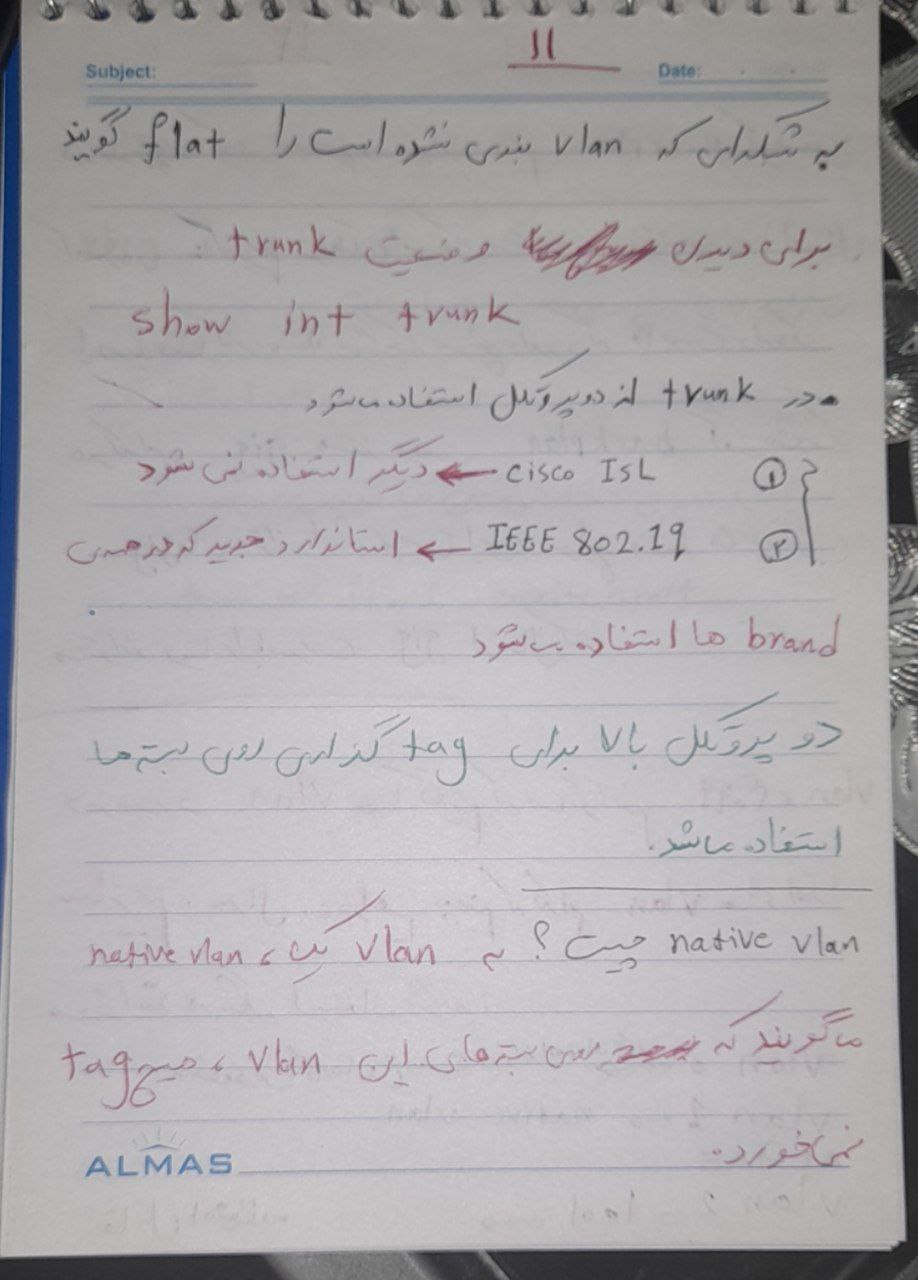 11
Subject:
Date:
به شبکه‌ای که vlan بندی نشده است را flat گویند
برای دیدن وضعیت trunk :
show int trunk
• در trunk از دو پروتکل استفاده میشود
① cisco ISL ← دیگر استفاده نمی شود
② IEEE 802.1q ← استاندارد جدید که در همه‌ی
brand ها استفاده میشود
دو پروتکل بالا برای tag گذاری روی بسته ها
استفاده ماشد.
native vlan چیست؟ به vlan یک، native vlan
می گویند که روی بسته های این vlan، هیچ tag
نمیخورد.
ALMAS